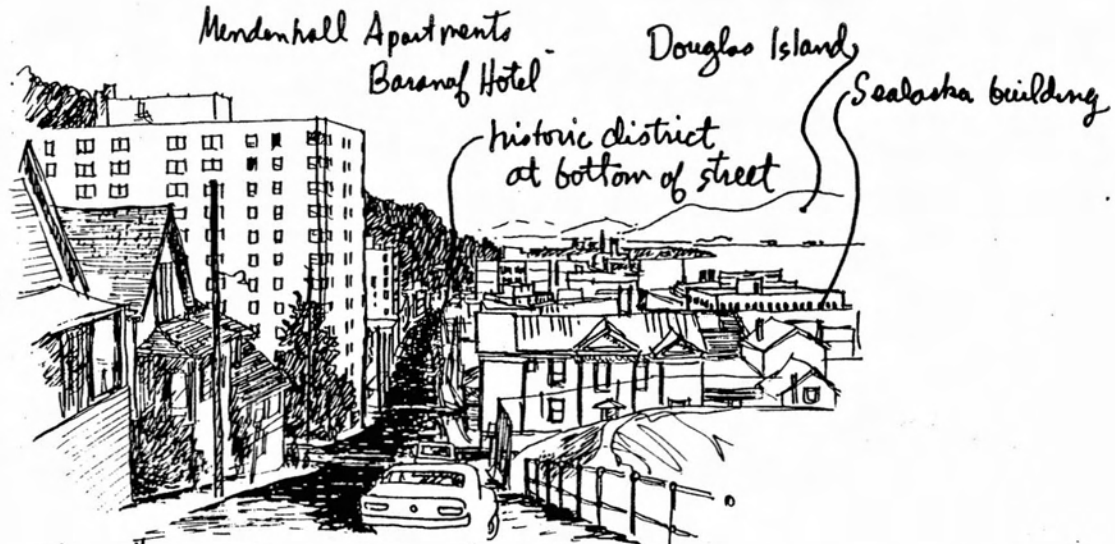 Mendenhall Apartments
Baranof Hotel
Douglas Island
Sealaska building
historic district
at bottom of street